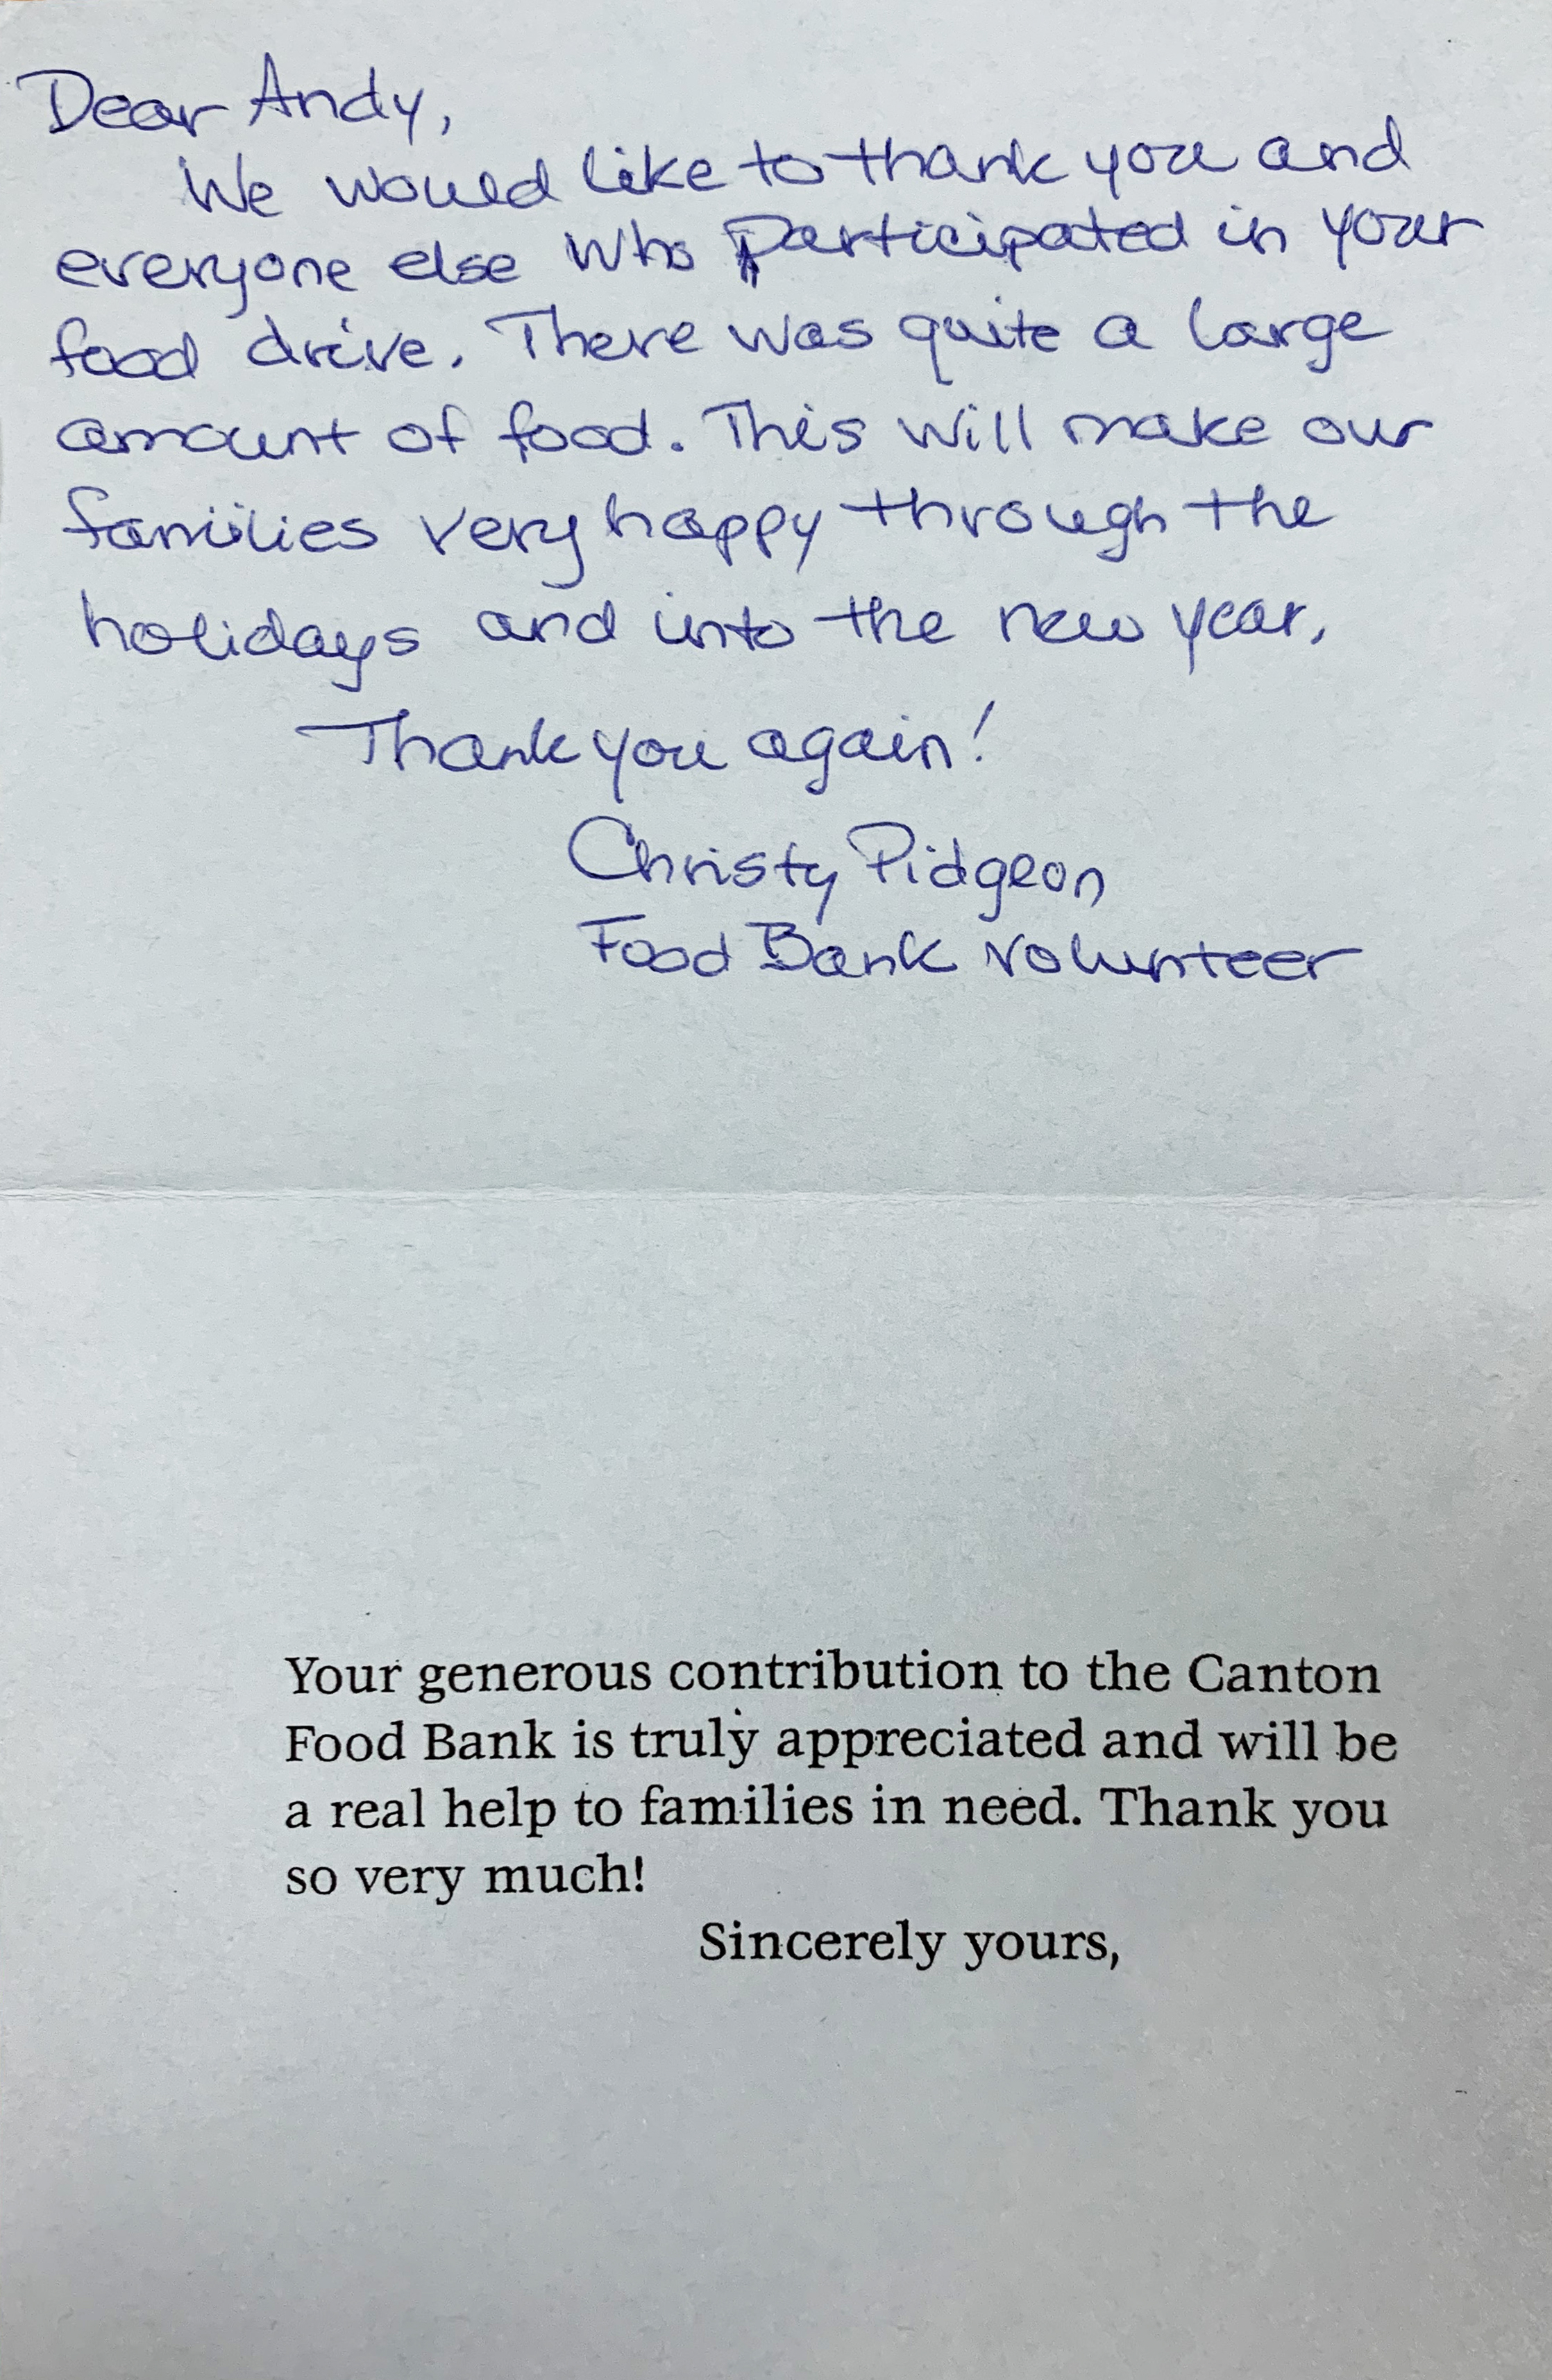 Dear Andy,
We would like to thank you and
everyone else who participated in your
food drive. There was quite a large
amount of food. This will make our
families very happy through the
holidays and into the new year.
Thank you again!
Christy Pidgeon
Food Bank Volunteer
Your generous contribution to the Canton
Food Bank is truly appreciated and will be
a real help to families in need. Thank you
so very much!
Sincerely yours,